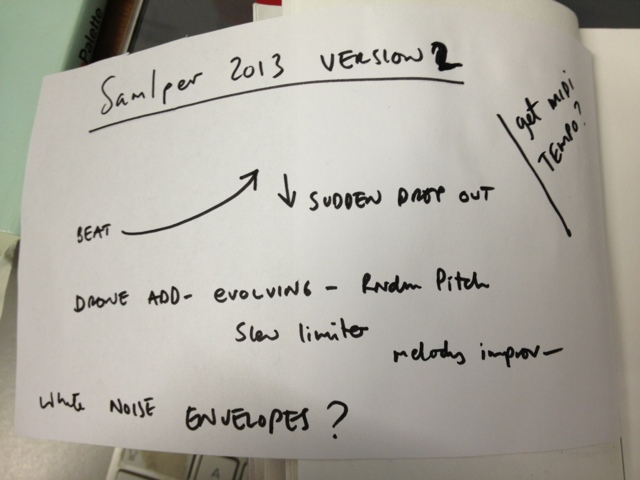 Samlper 2013 VERSION 2
get MIDI
TEMPO?
BEAT
SUDDEN DROP OUT
DRONE ADD- EVOLVING - Rndm Pitch
Slew limiter
melody improv -
WHITE NOISE ENVELOPES?
Palette
A